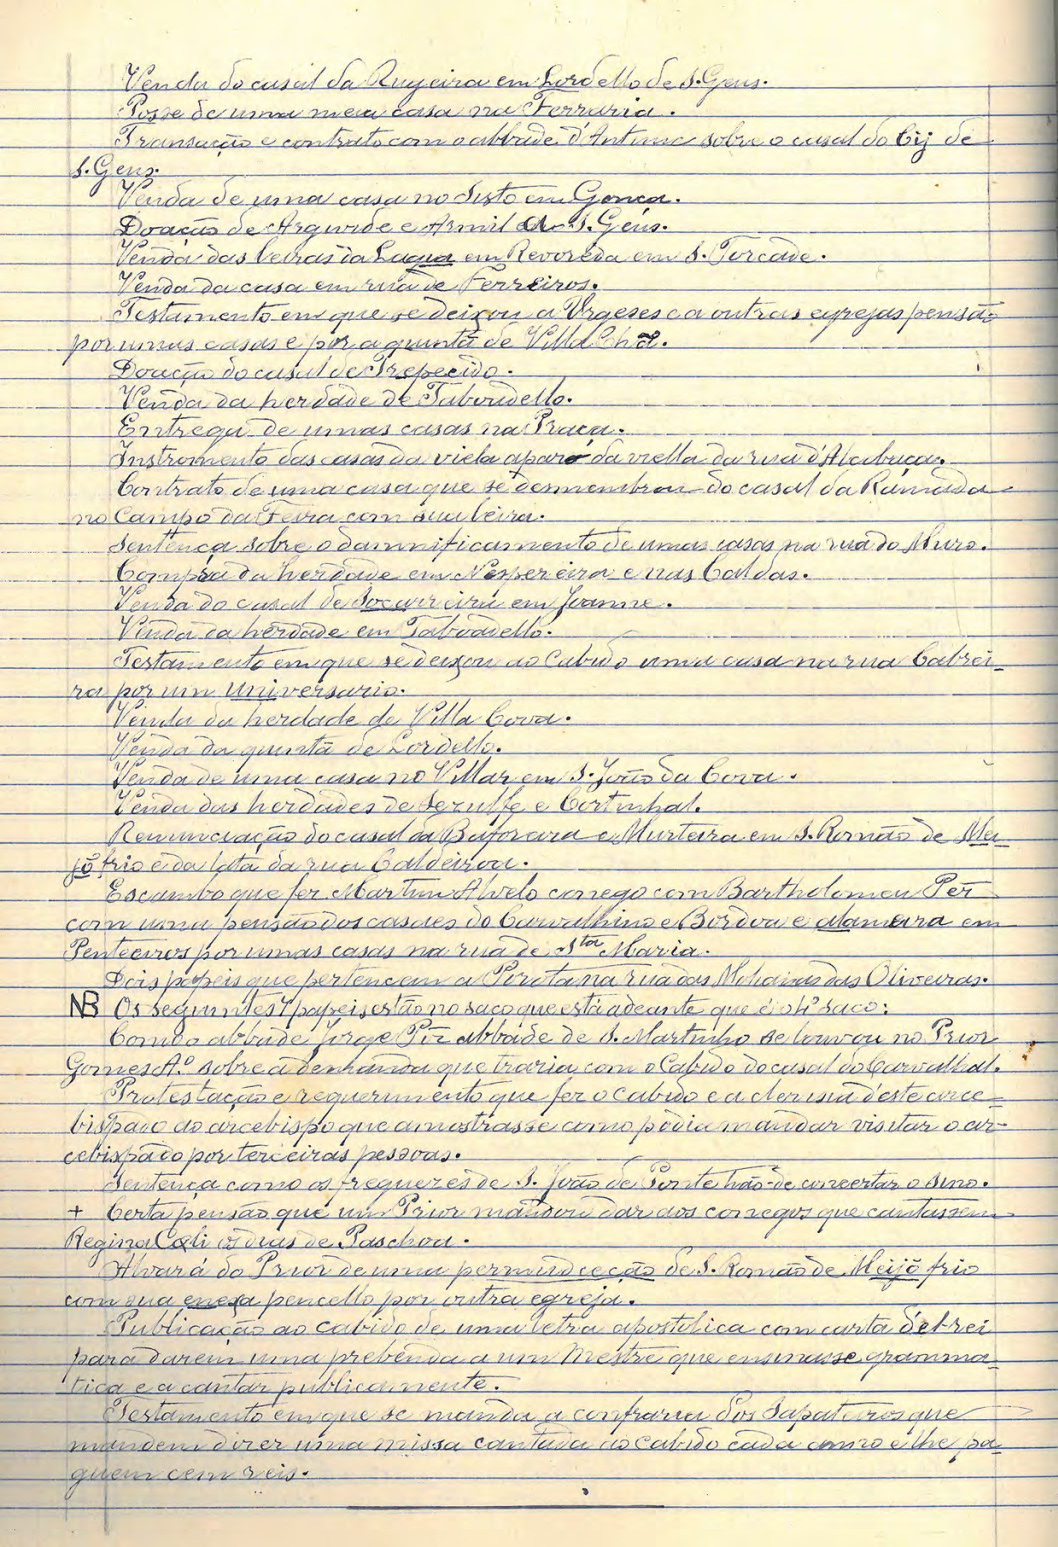 Venda do casal da Rugeira em Lordello de S. Gens.
Posse de uma meia casa na Ferraria.
Transação e contrato com o abbade d'Antime sobre o casal do Cij de
S. Gens.
Venda de uma casa no Sisto em Gonça.
Doação de Arguide e Armil de S. Gens.
Venda das leiras da Lagua em Revoreda em S. Torcade.
Venda da casa em rua de Ferreiros.
Testamento em que se deixou a Urgeses e a outras egrejas pensão
por umas casas e por a quintã de Villa Chã.
Doação do casal de Trepecido.
Venda da herdade de Taboadello.
Entrega de umas casas na Praça.
Instromento das casas da viela apar da viella da rua d'Alcabuça.
Contrato de uma casa que se desmembrou do casal da Ramada
no Campo da Feira com sua leira.
Sentença sobre o damnificamento de umas casas na rua do Muro.
Compra da herdade em Nespereira e nas Caldas.
Venda do casal de Socarreira em Joanne.
Venda da herdade em Taboadello.
Testamento em que se deixou ao Cabido uma casa na rua Cabrei-
ra por um universario.
Venda da herdade de Villa Cova.
Venda da quintã de Lordello.
Venda de uma casa no Villar em S. João da Cova.
Venda das herdades de Seruffe e Cortinhal.
Renunciação do casal da Baforara e Murteira em S. Romão de Mei-
jõ frio e da lata da rua Caldeiroa.
Escambo que fez Martim Alvelo conego com Bartholomeu Per
com uma pensão dos casaes do Carvalhino e Bordoa e alameira em
Penteeiros por umas casas na rua de Sta Maria.
Dois papeis que pertencem a Porota na rua das Mohaias das Oliveiras.
NB Os seguintes 7 papeis estão no saco que está adeante que é o 4º saco:
Como o abbade Jorge Pir abbade de S. Martinho se louvou no Prior
Gomes Aº sobre a demanda que traria com o Cabido do casal do Carvalhal.
Protestação e requerimento que fez o Cabido e a cleresia d'este arce-
bispado ao arcebispo que amostrasse como podia mandar visitar o ar-
cebispado por terceiras pessoas.
Sentença como os freguezes de S. João de Ponte hão-de concertar o sino.
+ Certa pensão que um Prior mandou dar aos conegos que cantassem
Regina Cæli os dias de Paschoa.
Alvará do Prior de uma permudceção de S. Romão de Meijõ frio
com sua enexa pencello por outra egreja.
Publicação ao cabido de uma letra apostolica com carta d'el-rei
para darem uma prebenda a um Mestre que ensinasse gramma-
tica e a cantar publicamente.
Testamento em que se manda a confraria dos Sapateiros que
mandem dizer uma missa cantada ao cabido cada anno e lhe pa-
guem cem reis.